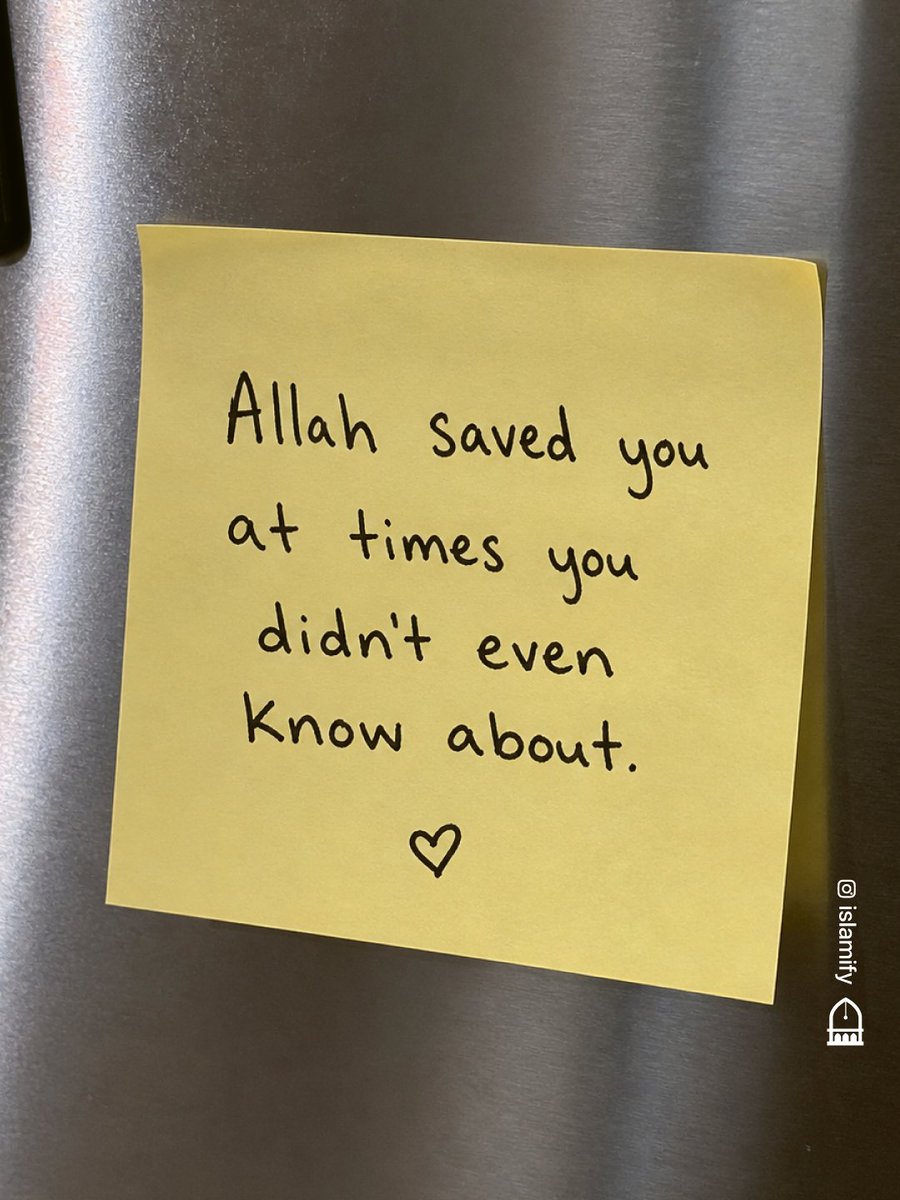 Allah saved you
at times you
didn't even
know about.
♡
islamify